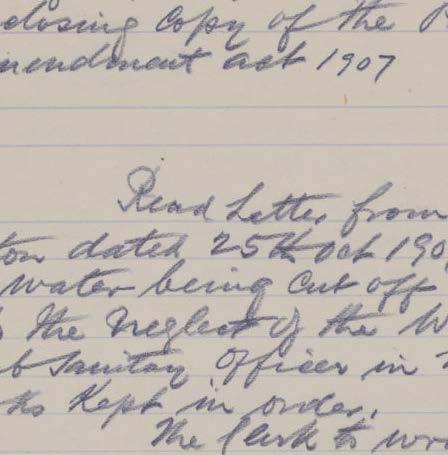 closing Copy of the
mendment act 1907
Read Letter from
ton dated 25th Oct 190
water being Cut off
the Neglect of the W
b Sanitary Officer in
ks Kept in order.
The Clerk to wri